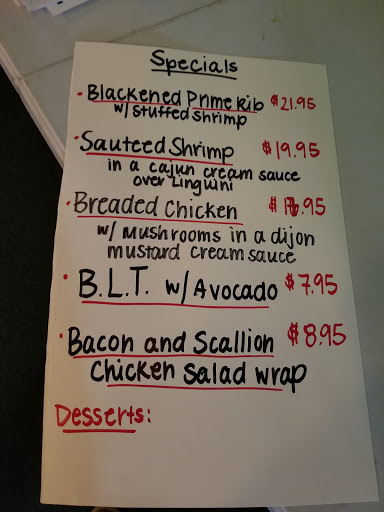 Specials
• Blackened Prime Rib $21.95
w/ stuffed shrimp
• Sauteed Shrimp $19.95
in a cajun cream sauce
over Linguini
• Breaded Chicken
w/ Mushrooms in a dijon
mustard cream sauce
• B.L.T. w/ Avocado $7.95
• Bacon and Scallion $8.95
Chicken Salad wrap
Desserts: